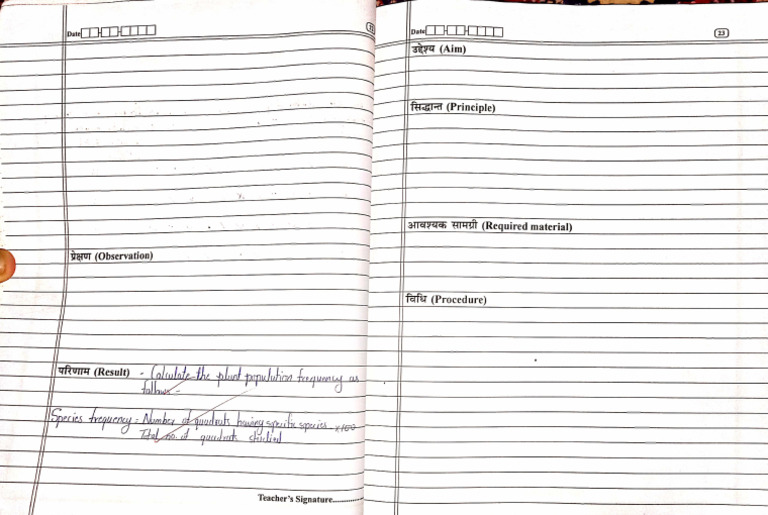 Date
प्रेक्षण (Observation)
परिणाम (Result) - Calculate the plant population frequency as
follows -
Species frequency = Number of quadrats having specific species ×100
Total no. of quadrats studied
Teacher's Signature.............
Date
23
उद्देश्य (Aim)
सिद्धान्त (Principle)
आवश्यक सामग्री (Required material)
विधि (Procedure)